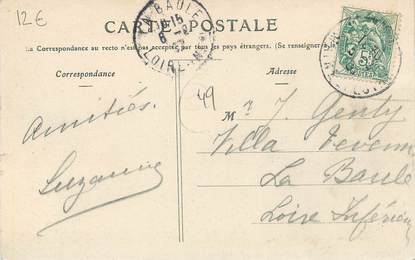 12€
CARTE POSTALE
La Correspondance au recto n'est pas acceptée par tous les pays étrangers. (Se renseigner à la
Correspondance
Adresse
49
LA BAULE
LOIRE
Amitiés.
Suzanne
Mr J. Genty
Villa
La Baule
Loire Inférieure